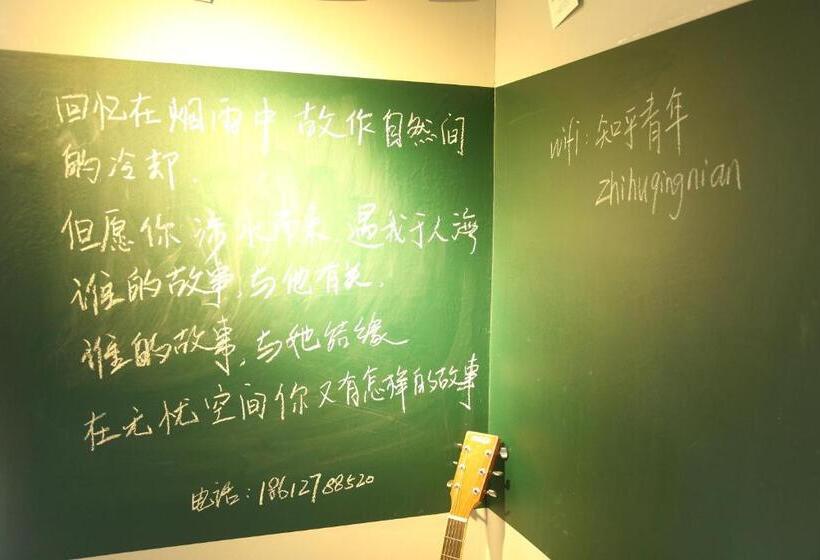 回忆在烟雨中 故作自然间
的冷却.
但愿你涉水而来 遇我于人海
谁的故事,与他有关.
谁的故事,与她结缘
在无忧空间你又有怎样的故事
电话:18612788520
wifi:知乎青年
zhihuqingnian